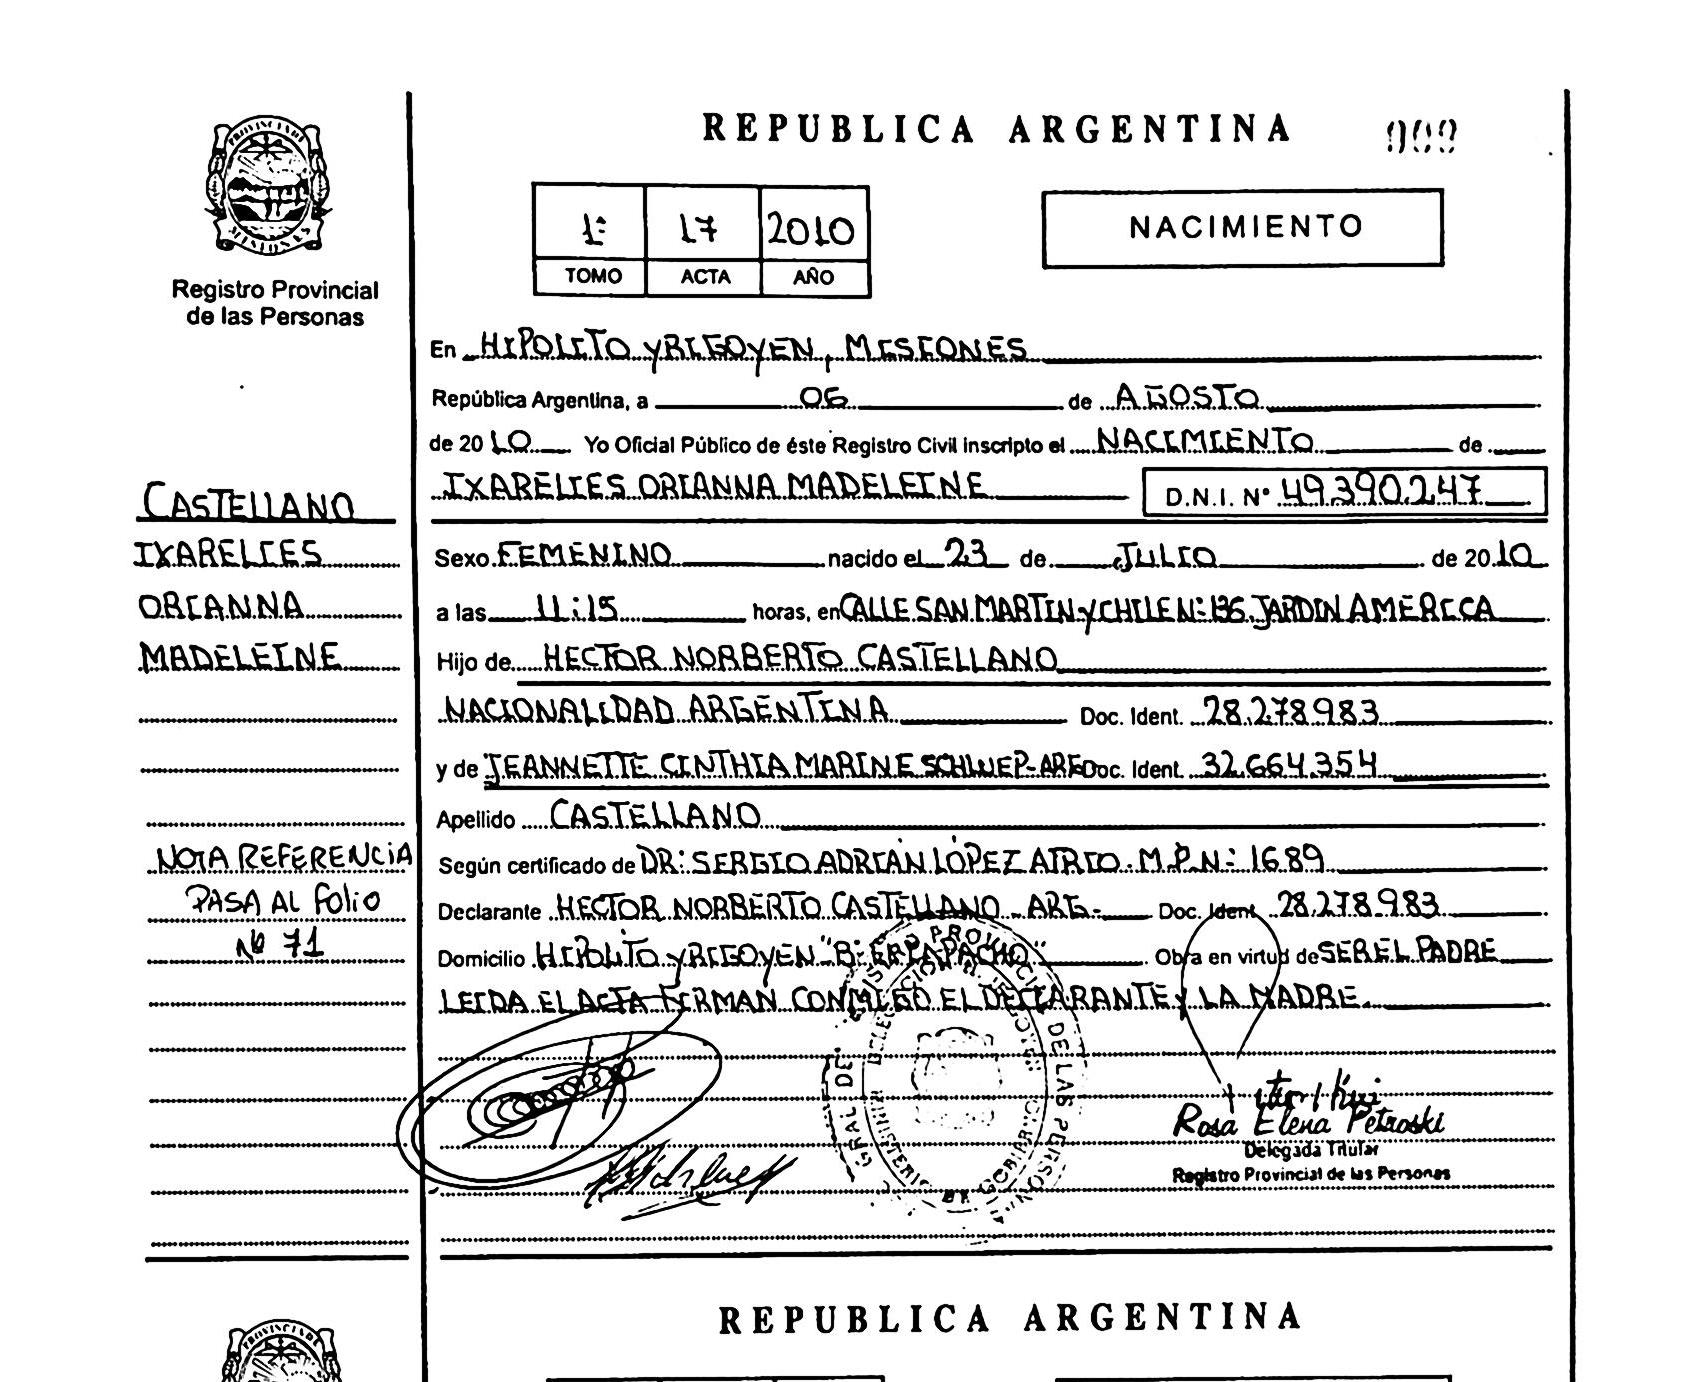 REPUBLICA ARGENTINA
009
PROVINCIA DE
MISIONES
Registro Provincial
de las Personas
1º 17 2010
TOMO ACTA AÑO
NACIMIENTO
En HIPOLITO YRIGOYEN, MISIONES
República Argentina, a 06 de AGOSTO
de 2010 Yo Oficial Público de éste Registro Civil inscripto el NACIMIENTO de
IXARELIES ORIANNA MADELEINE D.N.I. Nº 49.390.247
CASTELLANO
IXARELIES
ORIANNA
MADELEINE
Sexo FEMENINO nacido el 23 de JULIO de 2010
a las 11:15 horas, en CALLE SAN MARTIN Y CHILE Nº 136 JARDIN AMERICA
Hijo de HECTOR NORBERTO CASTELLANO
NACIONALIDAD ARGENTINA Doc. Ident. 28.278.983
y de JEANNETTE CINTHIA MARINE SCHWEP-ARG Doc. Ident. 32.664.354
Apellido CASTELLANO
Según certificado de DR: SERGIO ADRIÁN LÓPEZ M.P.Nº 1689
Declarante HECTOR NORBERTO CASTELLANO - ARG- Doc. Ident. 28.278.983
Domicilio HIPOLITO YRIGOYEN Obra en virtud de SER EL PADRE
LEIDA EL ACTA FIRMAN CONMIGO EL DECLARANTE Y LA MADRE
NOTA REFERENCIA
PASA AL FOLIO
Nº 71
Rosa Elena Petroski
Delegada Titular
Registro Provincial de las Personas
REPUBLICA ARGENTINA
PROVINCIA DE